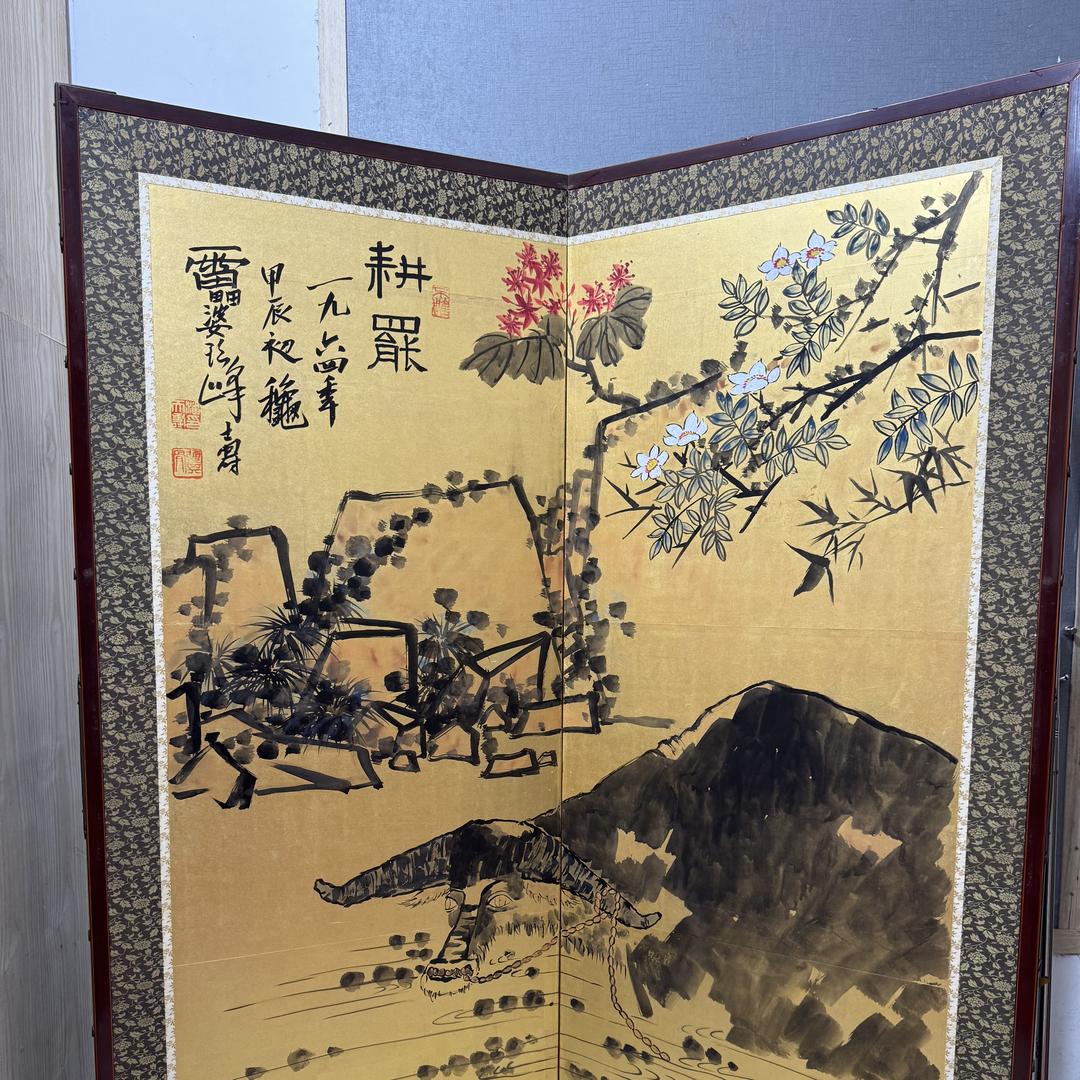 耕罷
一九六四年
甲辰初龝
靁婆頭峰壽